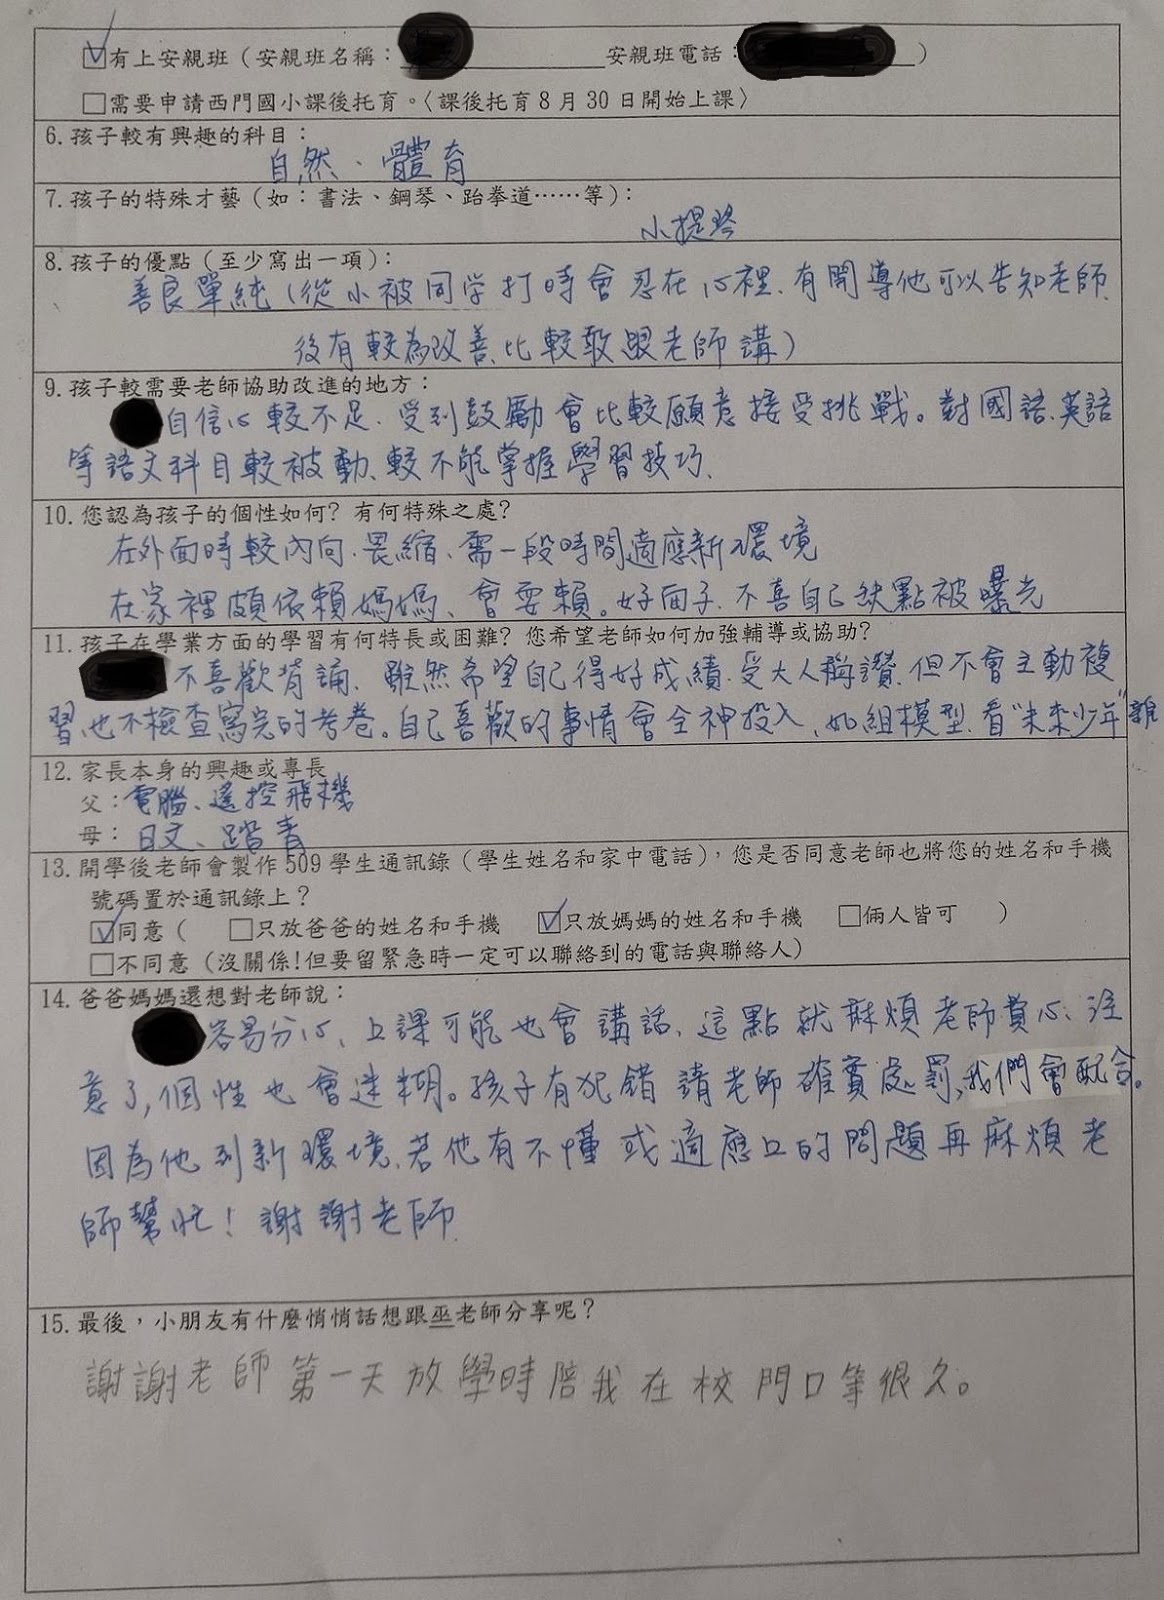 ☑有上安親班（安親班名稱： 安親班電話： ）
□需要申請西門國小課後托育。〈課後托育8月30日開始上課〉
6.孩子較有興趣的科目：
自然、體育
7.孩子的特殊才藝（如：書法、鋼琴、跆拳道……等）：
小提琴
8.孩子的優點（至少寫出一項）：
善良單純（從小被同学打時會忍在心裡、有開導他可以告知老師、
後有較為改善、比較敢跟老師講）
9.孩子較需要老師協助改進的地方：
自信心較不足、受到鼓勵會比較願意接受挑戰。對國語、英語
等語文科目較被動、較不能掌握學習技巧、
10.您認為孩子的個性如何？有何特殊之處？
在外面時較內向、畏縮、需一段時間適應新環境
在家裡頗依賴媽媽、會耍賴。好面子、不喜自己缺點被曝光
11.孩子在學業方面的學習有何特長或困難？您希望老師如何加強輔導或協助？
不喜歡背誦、雖然希望自己得好成績、受大人稱讚、但不會主動複
習、也不檢查寫完的考卷。自己喜歡的事情會全神投入、如組模型、看"未來少年"雜
12.家長本身的興趣或專長
父：電腦、遙控飛機
母：日文、踏青
13.開學後老師會製作509學生通訊錄（學生姓名和家中電話），您是否同意老師也將您的姓名和手機
號碼置於通訊錄上？
☑同意（ □只放爸爸的姓名和手機 ☑只放媽媽的姓名和手機 □倆人皆可 ）
□不同意（沒關係！但要留緊急時一定可以聯絡到的電話與聯絡人）
14.爸爸媽媽還想對老師說：
容易分心、上課可能也會講話、這點就麻煩老師費心注
意了，個性也會迷糊。孩子有犯錯請老師確實處罰，我們會配合。
因為他到新環境、若他有不懂或適應上的問題再麻煩老
師幫忙！謝謝老師
15.最後，小朋友有什麼悄悄話想跟巫老師分享呢？
謝謝老師第一天放學時陪我在校門口等很久。